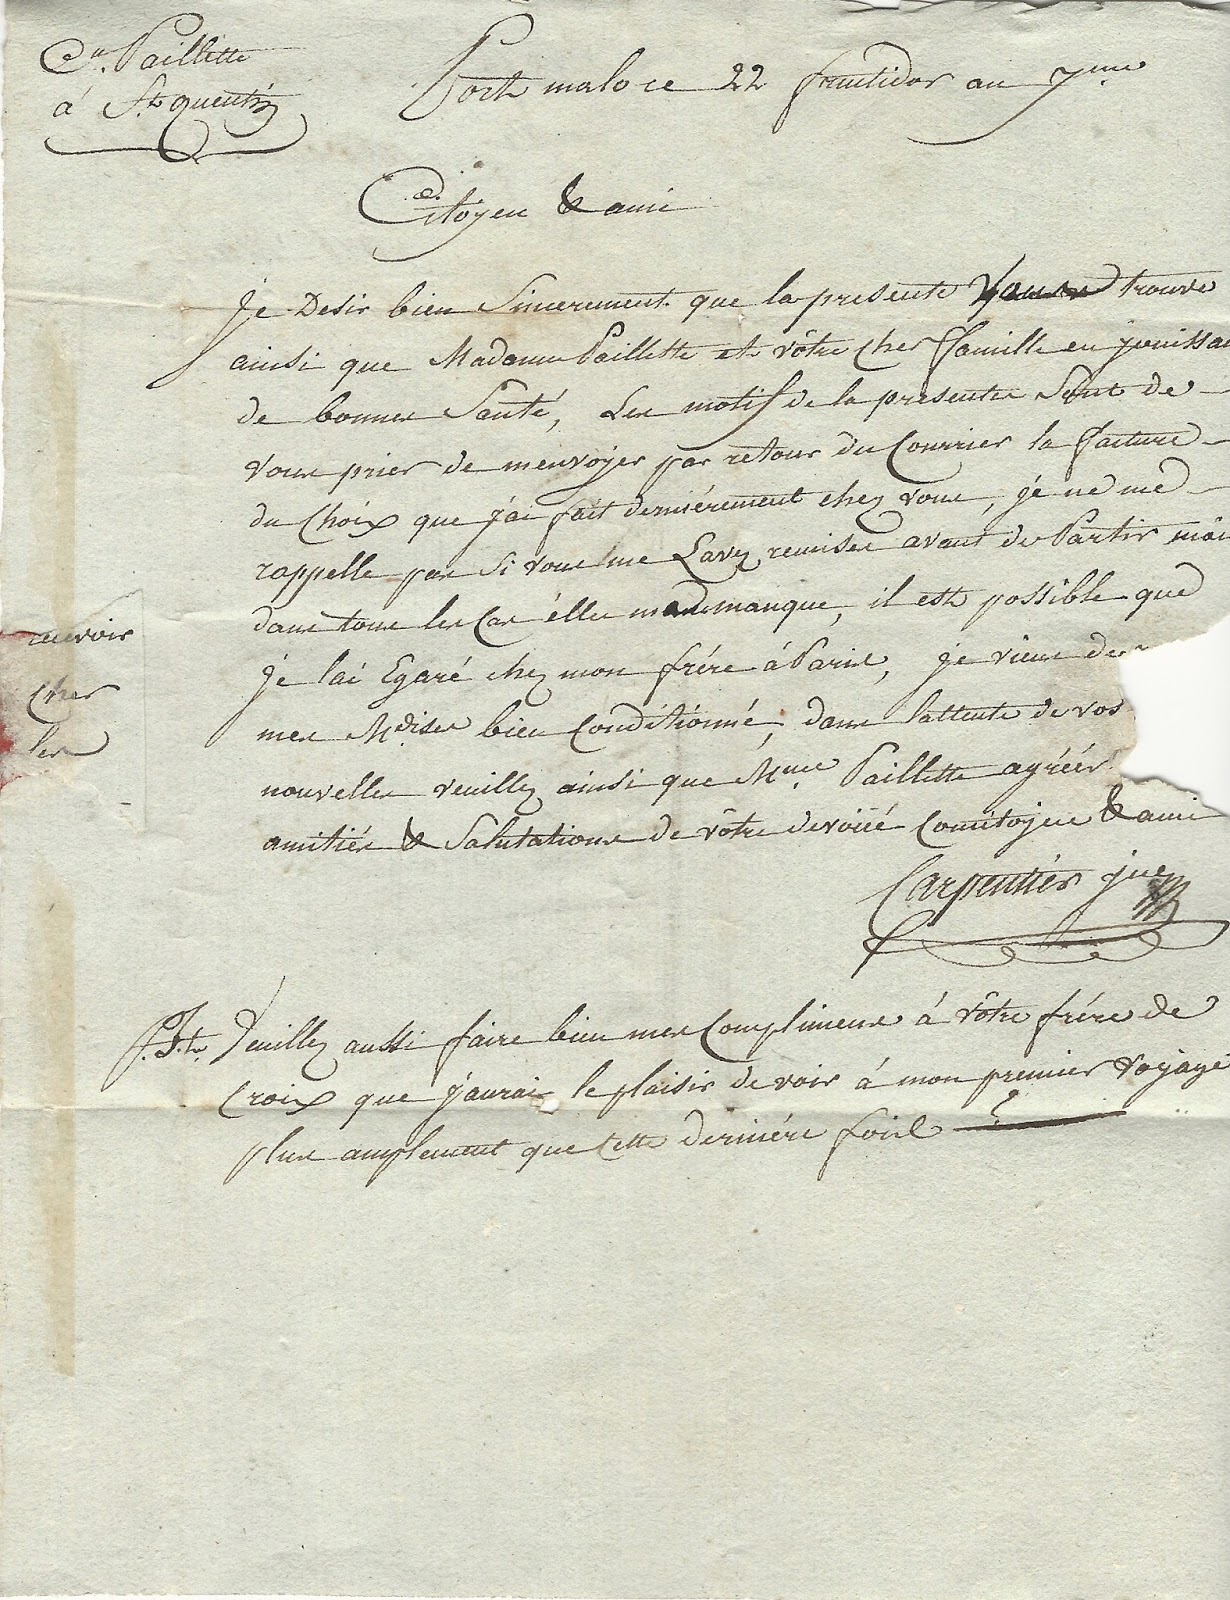 Cen. Paillette
à St. quentin
Port malo ce 22 fructidor an 7eme
Citoyen & ami
Je Desir bien Sincerement que la presente Vous trouve
ainsi que Madame Paillette et vôtre Cher famille en jouissa
de bonnes Santé, Les motif de la presentes Sont de
vous prier de menvoyer par retour du Courrier la facture
du Choix que j'ai fait derniérement chez vous, je ne me
rappelle pas Si vous me Lavez remises avant de Partir mâi
dans tous les Cas élles me manque, il est possible que
je l'ai Egaré chez mon frére à Paris, je viens de
mes Mdises bien Conditionné, dans l'attente de vos
nouvelles veuillez ainsi que Mme Paillette agréér
amitiés & Salutations de vôtre devoüé Comitoyen & ami
Carpentier jne
P.Ste. Veuillez aussi faire bien mes Complimens à vôtre frére de
Croix que j'aurai le plaisir de voir à mon premier voyage
plus amplement que Cette derniére fois
recevoir
cher
les